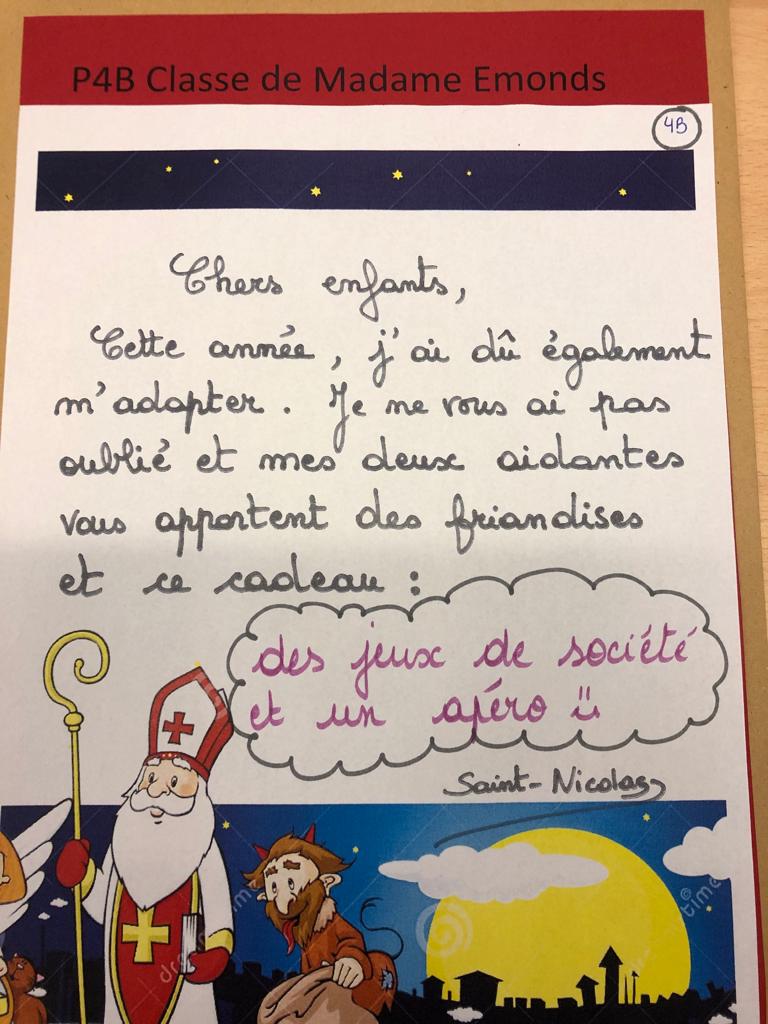 P4B Classe de Madame Emonds
4B
Chers enfants,
Cette année, j'ai dû également
m'adapter. Je ne vous ai pas
oublié et mes deux aidantes
vous apportent des friandises
et ce cadeau :
des jeux de société
et un apéro
Saint-Nicolas